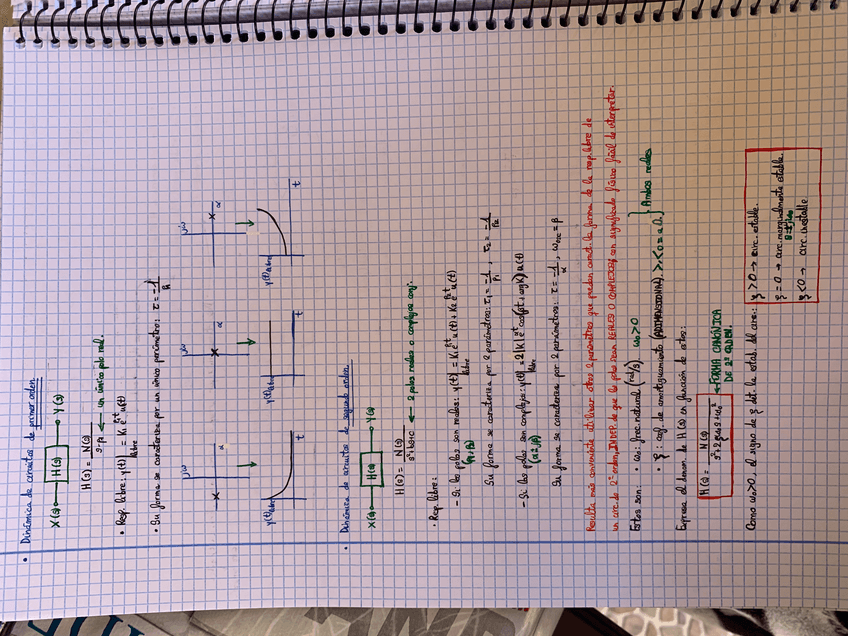 • Dinámica de circuitos de primer orden.
X(s) H(s) Y(s)
H(s) = N(s) / s-p1 ← un único polo real.
• Resp. libre: y(t)libre = K1 e^p1t u(t)
• Su forma se caracteriza por un único parámetro: τ = -1/p1
jω jω jω
α α α
y(t)libre y(t)libre y(t)libre
t t t
• Dinámica de circuitos de segundo orden.
X(s) H(s) Y(s)
H(s) = N(s) / s²+bs+c ← 2 polos reales o complejos conj.
• Resp. libre:
- Si los polos son reales: y(t)libre = K1 e^p1t u(t) + K2 e^p2t u(t)
(p1, p2)
Su forma se caracteriza por 2 parámetros: τ1 = -1/p1, τ2 = -1/p2
- Si los polos son complejos: y(t)libre = 2|K| e^αt cos(βt + arg K) u(t)
(α ± jβ)
Su forma se caracteriza por 2 parámetros: τ = -1/α, ωosc = β
Resulta más conveniente utilizar otros 2 parámetros que puedan caract. la forma de la resp. libre de
un circ. de 2º orden, INDEP. de que los polos sean REALES O COMPLEJOS, con significado físico fácil de interpretar.
Estos son: • ω0: frec. natural (rad/s). ω0 > 0
• ξ: coef. de amortiguamiento (ADIMENSIONAL). >, < o = a 0.
} Ambos reales
Expresa el denom. de H(s) en función de estos:
H(s) = N(s) / s²+2ξω0s+ω0² ← FORMA CANÓNICA
DE 2º ORDEN.
Como ω0>0, el signo de ξ det. la estab. del circ.:
ξ > 0 → circ. estable.
ξ = 0 → circ. marginalmente estable.
ξ < 0 → circ. inestable